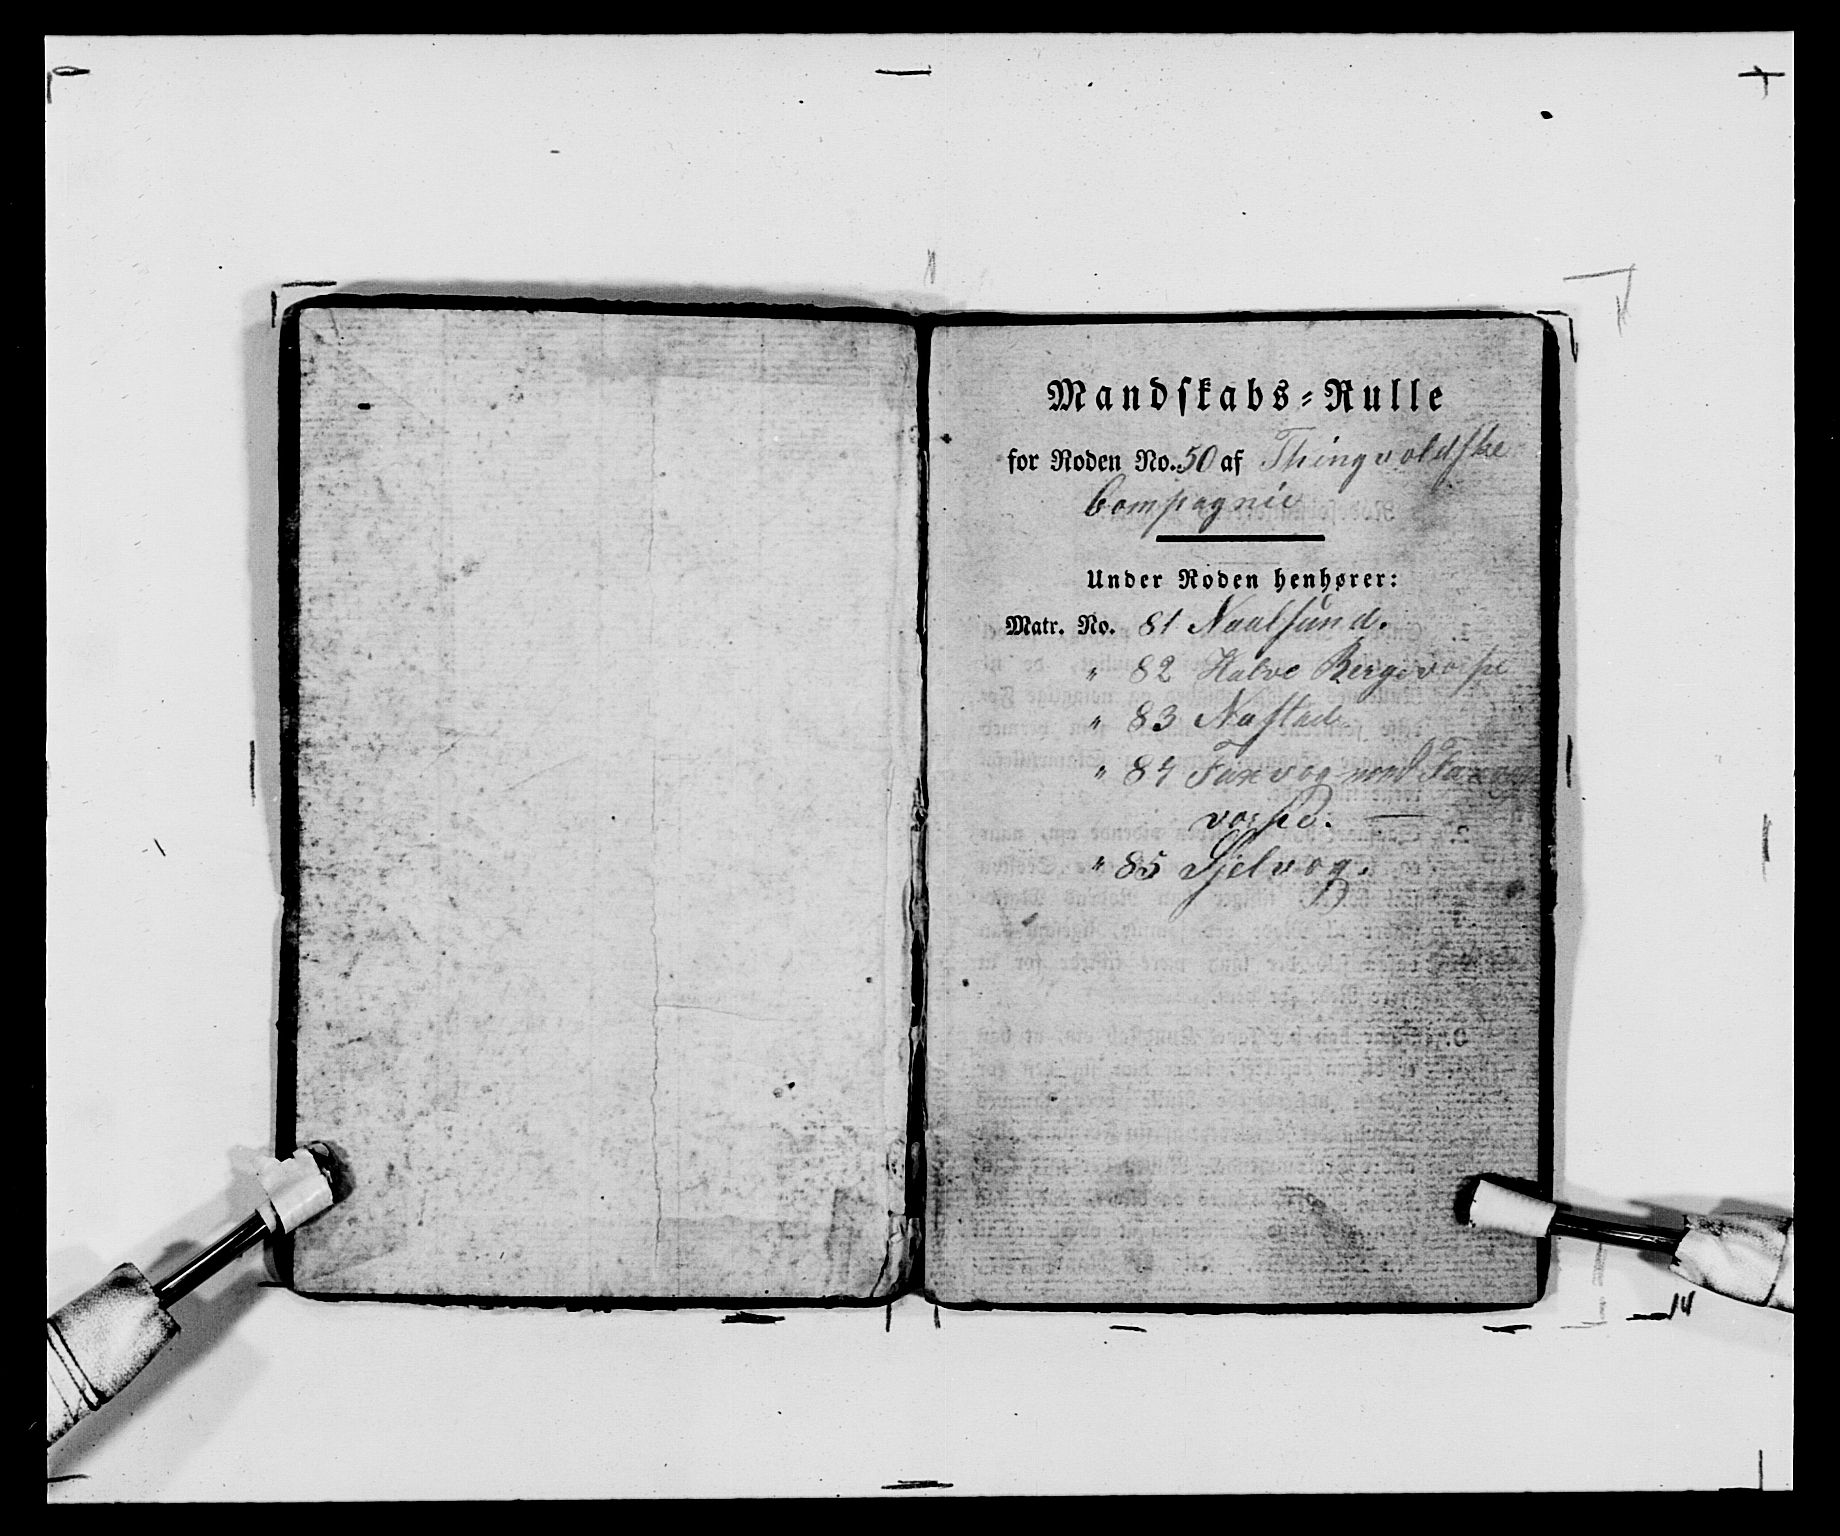 Mandskabs-Rulle
for Roden No. 50 af Thingvoldske
Compagnie
Under Roden henhører:
Matr. No. 81 Naalsund.
" 82 Halve Bergsvospe
" 83 Nastad
" 84 Faxvog med Faxvog
vospe.
" 85 Sjelvog.
14